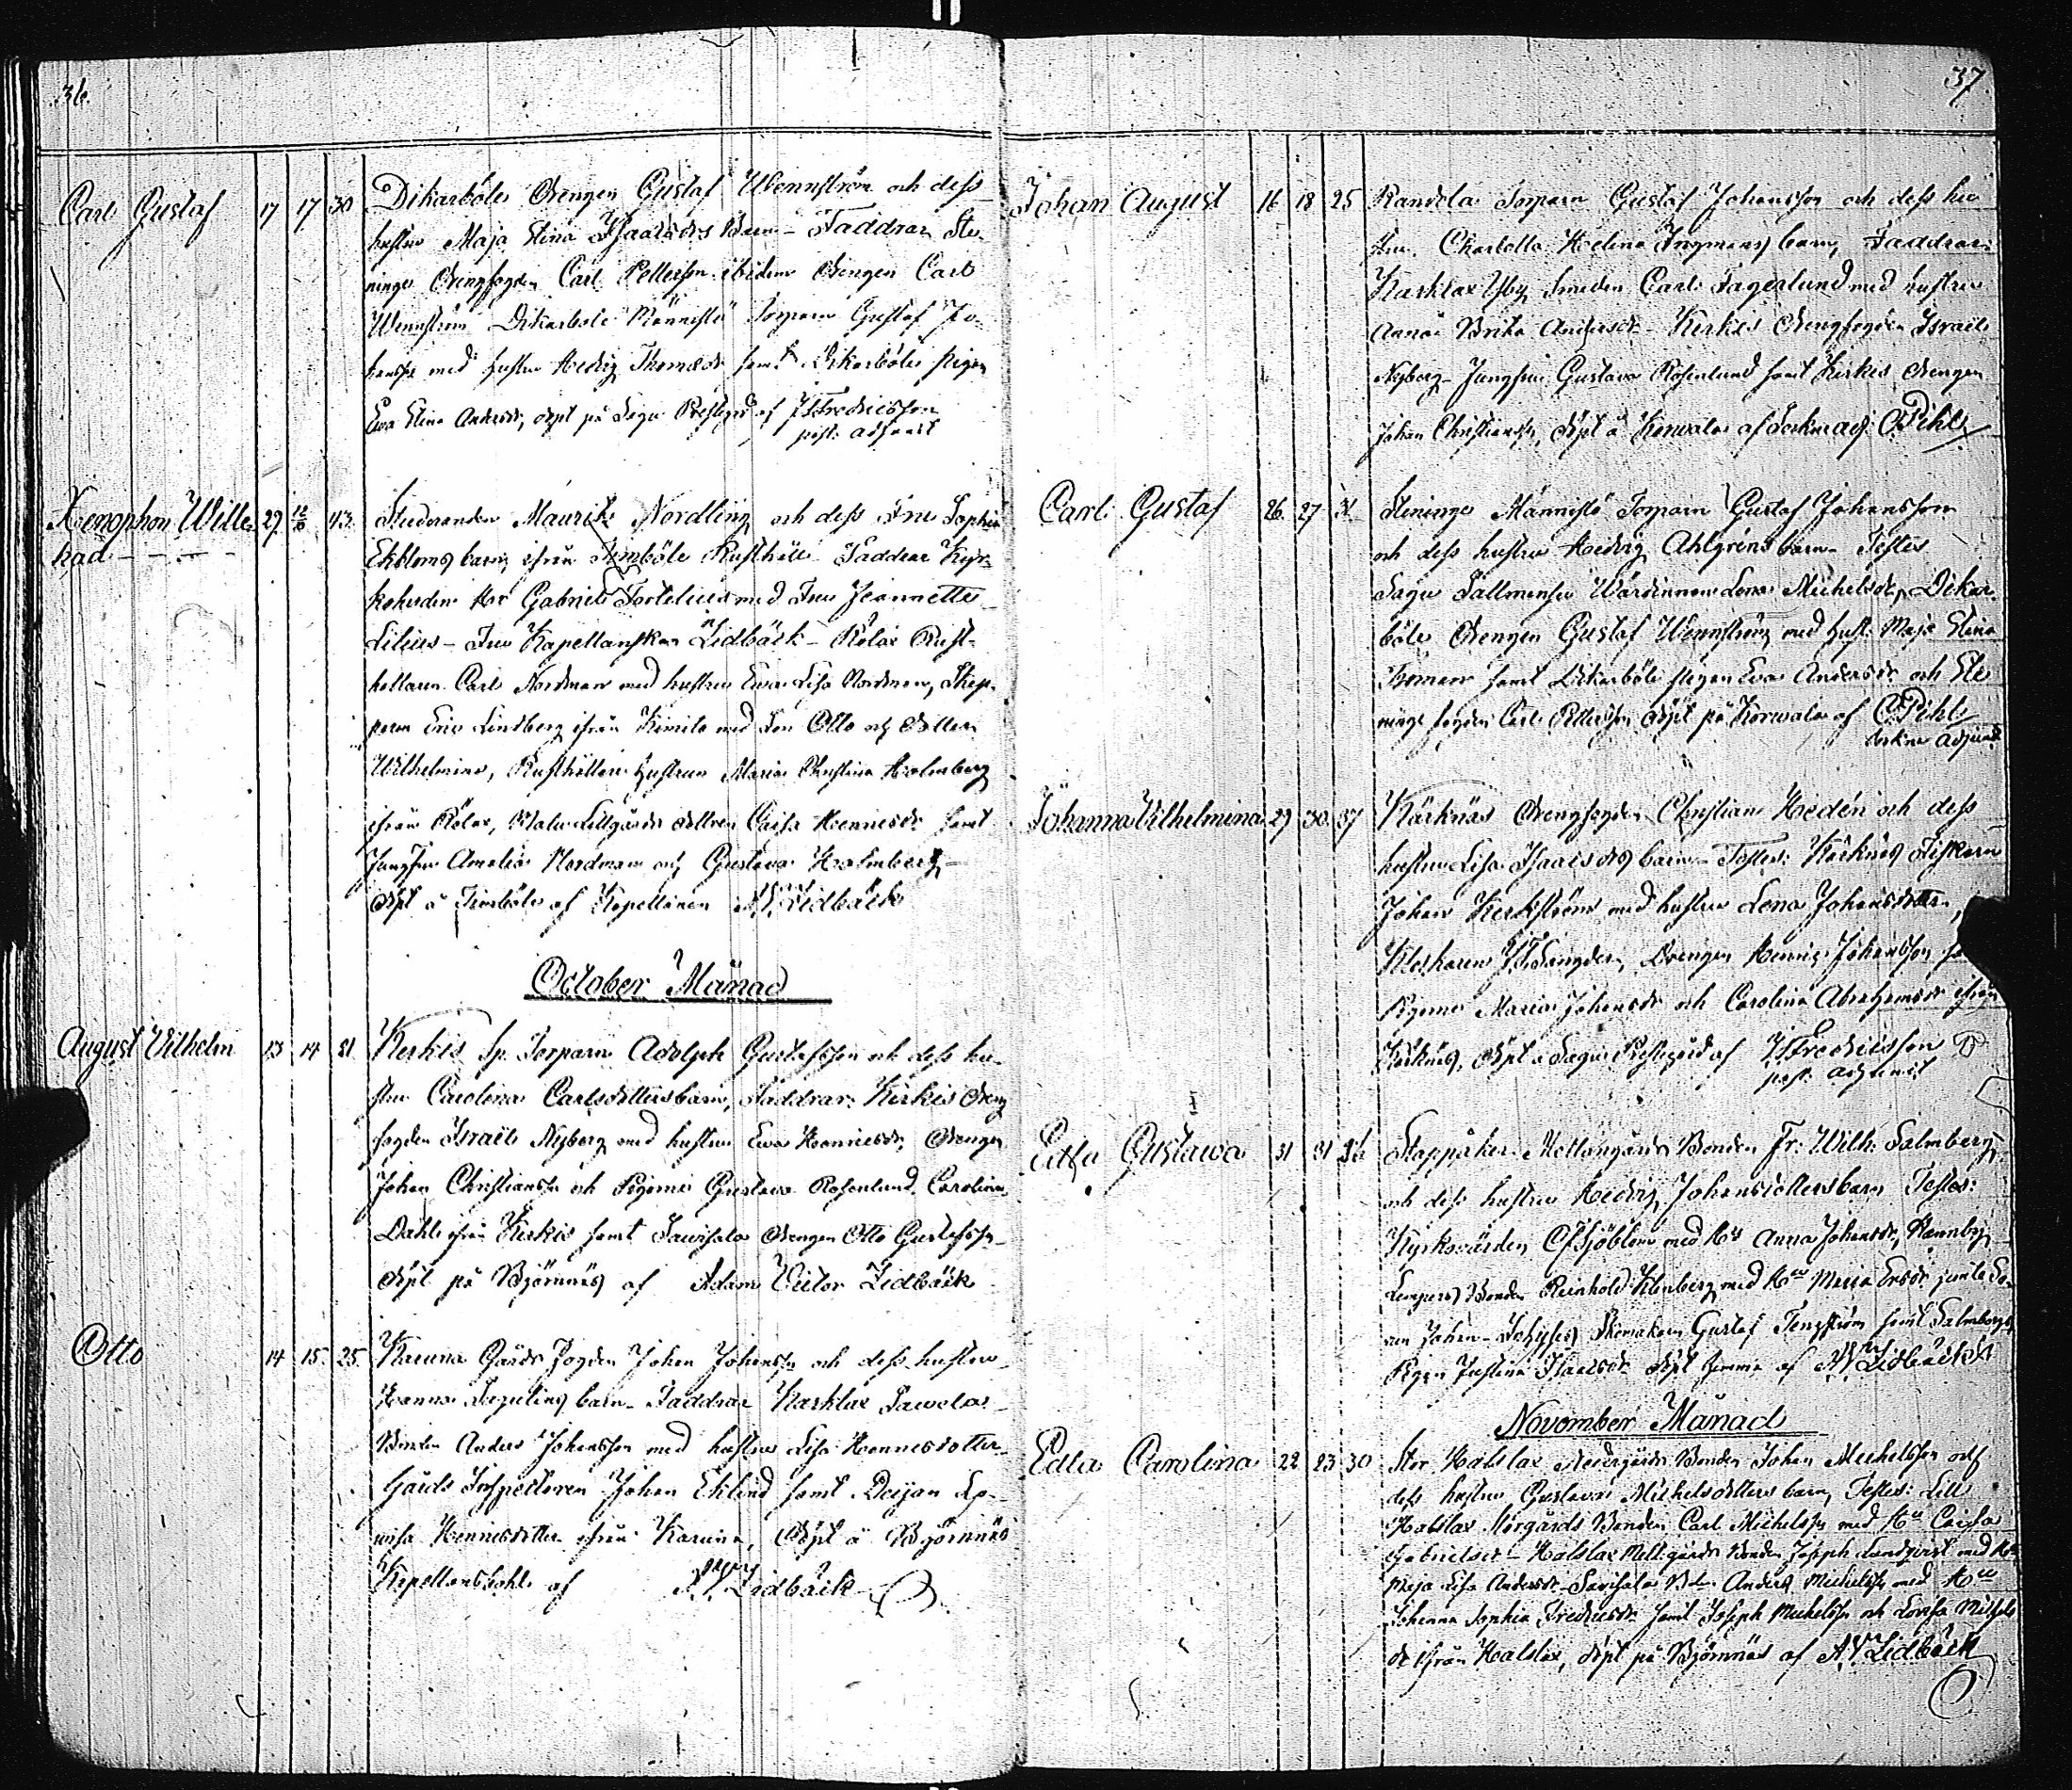 36.
Carl Gustaf 17 17 30 Dikarböle Drengen Gustaf Wennström och dess
hustru Maja Stina Isaacsdrs Barn - Faddrar Ste-
ninge Drengfogden Carl Pettersson ibidem Drengen Carl
Wennström Dikarböle Männistö Torparn Gustaf Jo-
hansson med hustru Hedvig Thomasdr samt Dikarböle pigan
Eva Stina Andersdr, döpt på Sagu Prestgård af J Fredricsson
past. adjunct
Xenophon Wille- 29. 12/10 43. Studeranden Mauritz Nordling och dess Fru Sophia
had Ekbloms barn, ifrån Timböle Rusthåll - Faddrar Kyr-
koherden Herr Gabriel Fortelius med Fru Jeannette
Lilius - Fru Kapellanskan Lidbäck - Rölax Rust-
hållaren Carl Nordman med hustru Eva Lisa Nordman, Skep-
paren Eric Lindberg ifrån Kimito med Son Otto och dotter
Wilhelmina, Rusthållare hustrun Maria Christina Holmberg
ifrån Rölax, Lillgårds dottren Caisa Hennesdr samt
Jungfru Amalia Nordman och Gustava Holmberg -
döpt å Timböle af Kapellanen A.V. Lidbäck
October Månad
August Vilhelm 13 14 21 Kerkis Sp. Torparn Adolph Gustafsson och dess hu-
stru Carolina Carlsdotters barn, Faddrar: Kirkis Dreng
fogden Israel Nyberg med hustru Eva Hennesdr, Drengen
Johan Christiansson och Pigorne Gustava Rosenlund, Carolina
Dahl ifrån Kirkis samt Sauvala Drengen Otto Gustafsson
döpt på Björnnäs af Adam Victor Lidbäck
Otto 14 15. 25. Karuna Gårds Fogden Johan Johansson och dess hustru
Hanna Sagulins barn - Faddrar Karklax Sawola
Bonden Anders Johansson med hustru Lisa Hennesdotter
Gårds Inspectoren Johan Eklund samt Dejan Lo-
visa Hennesdotter ifrån Karuna, döpt å Björnnäs
Kapellansbohl af A.V. Lidbäck
37
Johan August 16 18 25 Randola Torparn Gustaf Johansson och dess hu-
stru Charlotta Helena Ingmans barn, Faddrar:
Karklax Yby Smeden Carl Fagerlund med hustru
Anna Brita Andersdr - Kirkis Drengfogden Israel
Nyberg - Jungfrun Gustava Rosenlund samt Kirkis Drengen
Johan Christiansson, döpt å Korwala af Sockne adj: C Pihl
Carl Gustaf 26. 27 Steninge Männistö Torparn Gustaf Johansson
och dess hustru Hedvig Ahlgréns barn - Testes
Sagu Wärdinnan Lena Michelsdr, Dikar-
böle Drengen Gustaf Wennström med hust. Maja Stina
samt Dikarböle pigan Eva Andersdr och Ste-
ninge fogden Carl Pettersson döpt på Korwala af C Pihl
Sockne Adjunct
Johanna Vilhelmina 29 30. 37 Kärknäs Drengfogden Christian Hedén och dess
hustru Lisa Isaacsdrs barn - Testes: Kärknäs Fiskaren
Johan Kerkström med hustru Lena Johansdotter,
Klockaren Drengen Henric Johansson
Pigorne Maria Johansdr och Carolina Abrahamsdr ifrån
Kärknäs, döpt å Sagu Prestgård af J Fredricsson
past. adjunct
Edla Gustawa 31 31 26 Stappåker Mellangårds Bonden Fr: Wilh: Salmberg
och dess hustru Hedvig Johansdotters barn Testes:
Kyrkovärden C F Sjöblom med Hu Anna Johansdr, Rænnby
Bonden Reinhold med Hu Maria Ersdr jemte So-
nen Johan - Skomakarn Gustaf Tengström samt Salmbergs
Pigan Justina Isaacsdr döpt hemma af A V Lidbäck
November Månad
Edla Carolina 22 23 30 Stor Halslax Nedergårds Bonden Johan Michelsson och
dess hustru Gustava Michelsdotters barn, Testes: Lill
Halslax Norgårds Bonden Carl Michelsson med Hu Caisa
Gabrielsdr - Halslax Mell: gårds Bonden Joseph Landqvist med Hu
Maja Lisa Andersdr - Savisala Bd. Anders Michelsson med Hu
Johanna Sophia Fredricsdr samt Joseph Michelsson och Lovisa Michels
dr ifrån Halslax, döpt på Björnnäs af A V Lidbäck